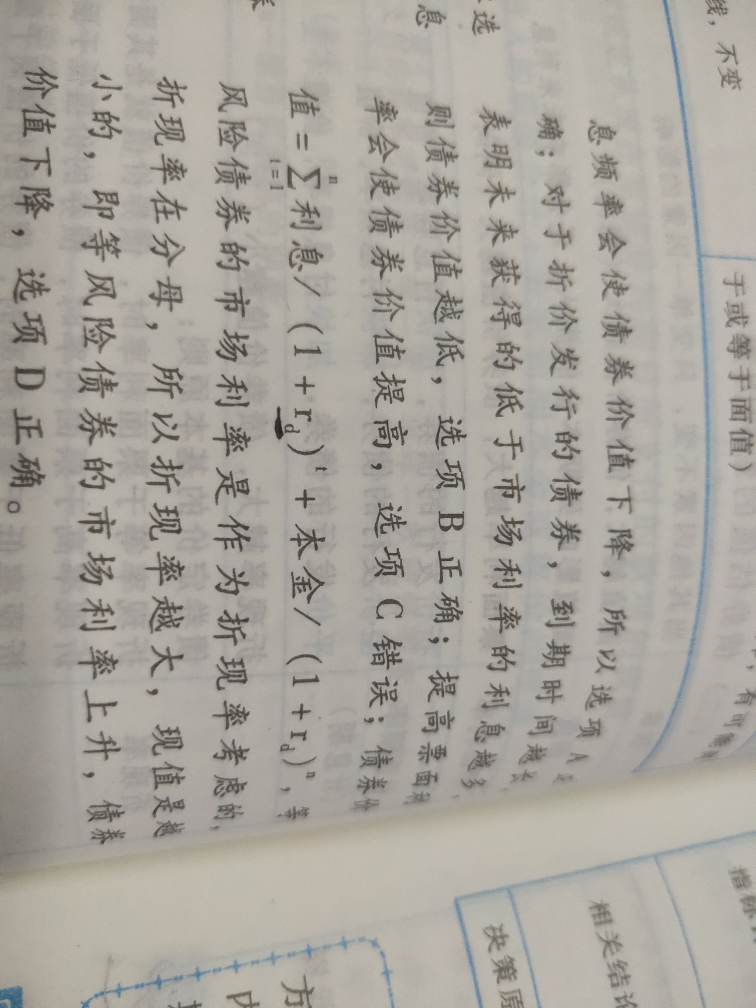 线，不变
于或等于面值）
有可能
选
息
息频率会使债券价值下降，所以选项 A 正
确；对于折价发行的债券，到期时间越长，
表明未来获得的低于市场利率的利息越多，
则债券价值越低，选项 B 正确；提高票面利
率会使债券价值提高，选项 C 错误；债券价
值 = ∑ⁿᵢ₌₁利息/（1 + r_d）ᵗ + 本金/（1 + r_d）ⁿ，等
风险债券的市场利率是作为折现率考虑的，
折现率在分母，所以折现率越大，现值是越
小的，即等风险债券的市场利率上升，债券
价值下降，选项 D 正确。
指标
相关结论
决策原
方
内